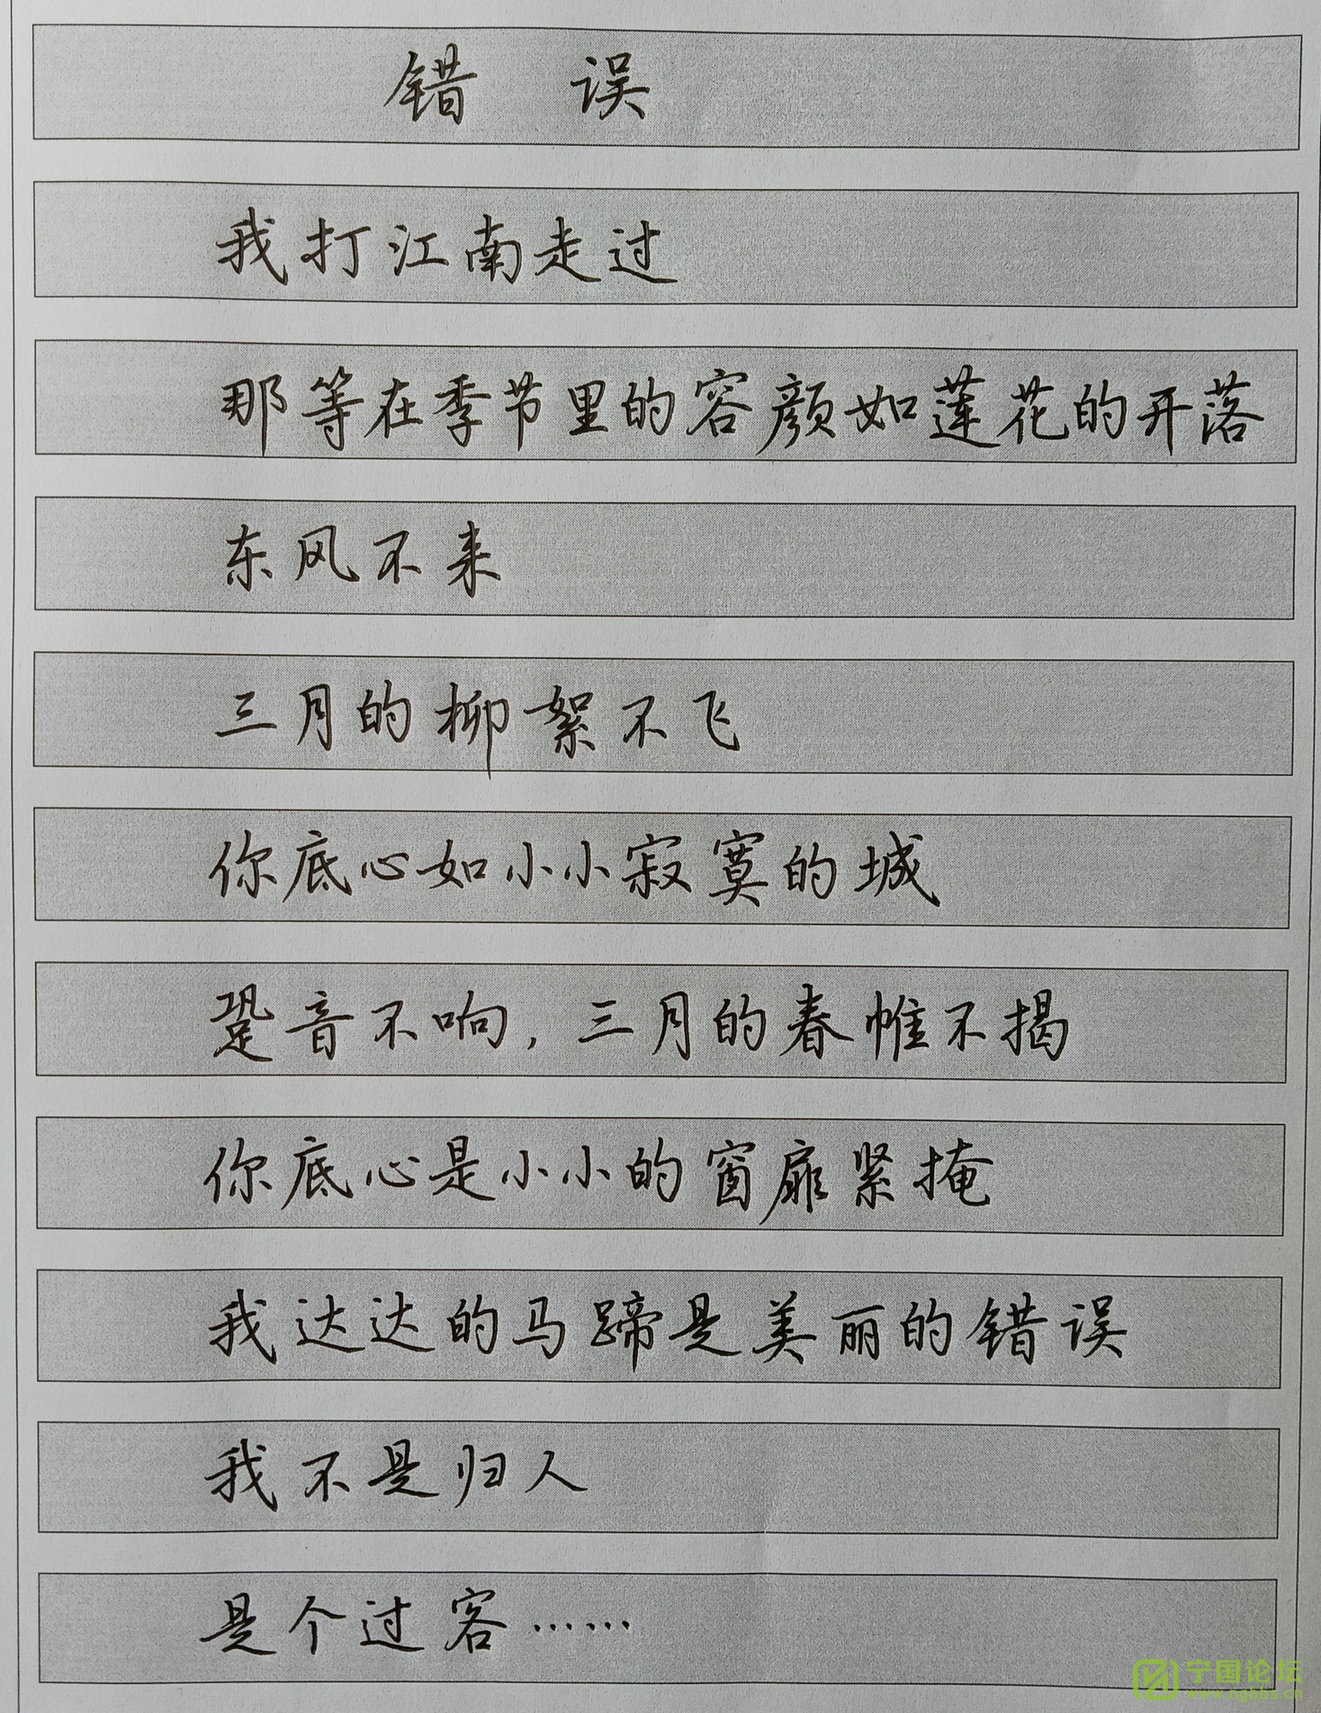 错 误
我打江南走过
那等在季节里的容颜如莲花的开落
东风不来
三月的柳絮不飞
你底心如小小寂寞的城
跫音不响,三月的春帷不揭
你底心是小小的窗扉紧掩
我达达的马蹄是美丽的错误
我不是归人
是个过客……
宁国论坛
www.ngbbs.cn